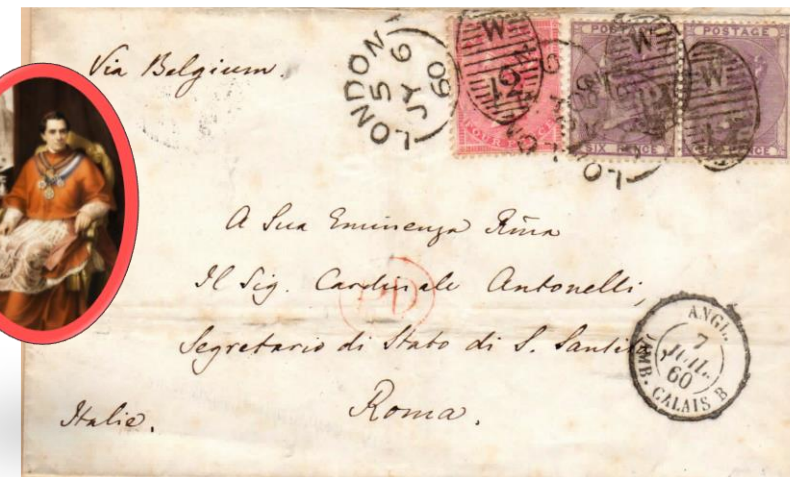 Via Belgium
LONDON
5
JY 6
60
POSTAGE
POSTAGE
FOUR PENCE
SIX PENCE
A Sua Eminenza Rma
Il Sig. Cardinale Antonelli,
PD
Segretario di Stato di S. Santità
Roma.
Italie.
ANGL.
7
JUIL.
60
AMB. CALAIS B